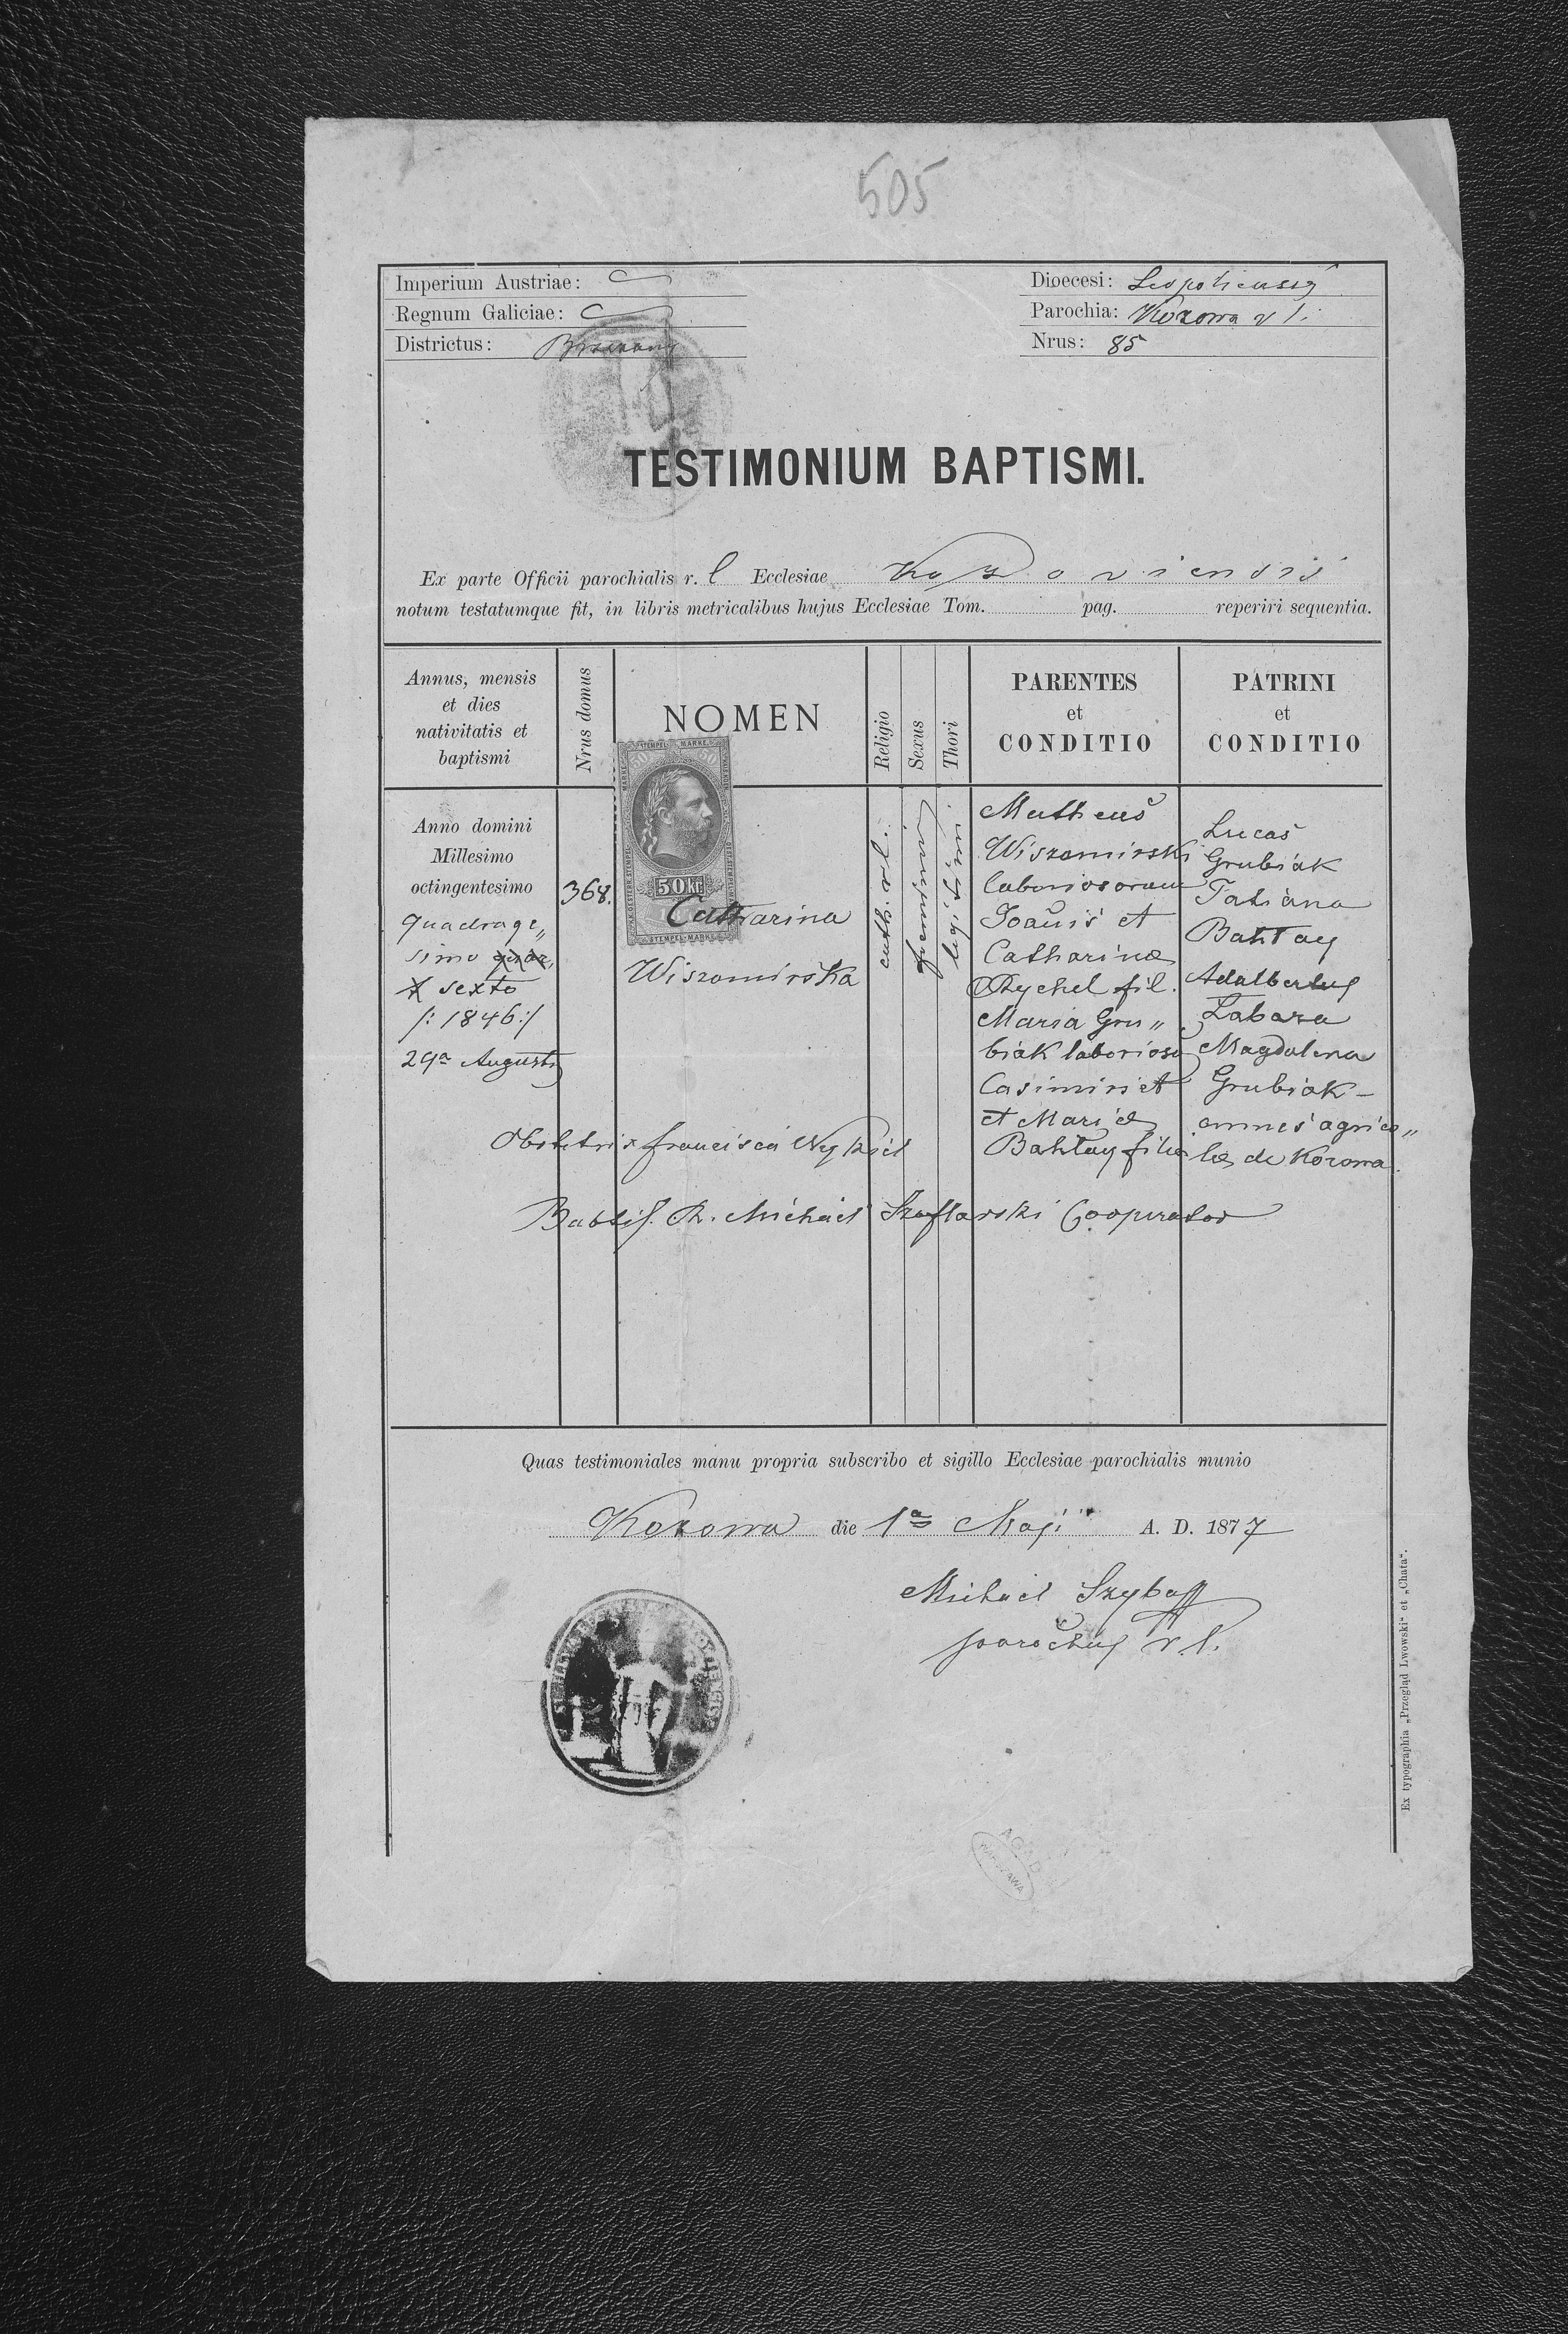 505
Imperium Austriae:
Regnum Galiciae:
Districtus: Brzeżany
Dioecesi: Leopoliensis
Parochia: Kozowa r l.
Nrus: 85
TESTIMONIUM BAPTISMI.
Ex parte Officii parochialis r. l Ecclesiae Kozoviensis
notum testatumque fit, in libris metricalibus hujus Ecclesiae Tom. pag. reperiri sequentia.
Annus, mensis
et dies
nativitatis et
baptismi
Nrus domus
NOMEN
Religio
Sexus
Thori
PARENTES
et
CONDITIO
PATRINI
et
CONDITIO
Anno domini
Millesimo
octingentesimo
quadrage„
simo
sexto
/: 1846 :/
29a Augusti
368.
STEMPEL MARKE
50 Kr
STEMPEL-MARKE
Catharina
Wiszomirska
cath. r l.
feminini
legitimi
Matheus
Wiszomirski
laboriosorum
Joanis et
Catharinae
Rychel fil.
Maria Gru„
biak laboriosa
Casimiri et
et Mariae
Bahtay filia
Lucas
Grubiak
Tatiana
Bahtay
Adalbertus
Łabaza
Magdalena
Grubiak –
omnes agrico„
lae de Kozowa.
Obstetrix Francisca
Babtis. R. Michael Szaflarski Cooperator
Quas testimoniales manu propria subscribo et sigillo Ecclesiae parochialis munio
Kozowa die 1a Maji A. D. 1877
Michael
parochus r. l.
AGAD
WARSZAWA
Ex typographia „Przegląd Lwowski“ et „Chata“.